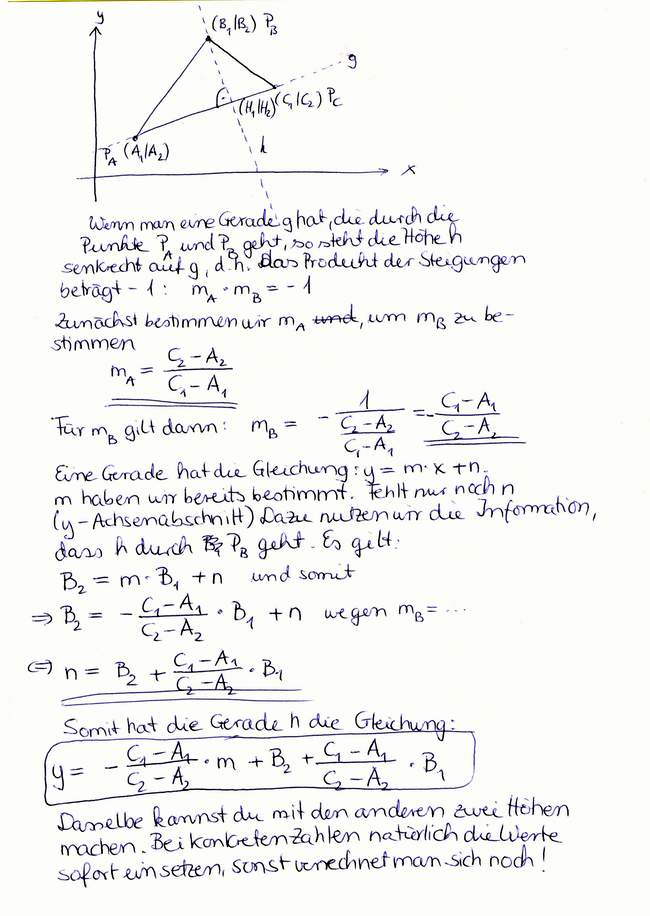 y
(B₁|B₂) P_B
g
(H₁|H₂) (C₁|C₂) P_C
P_A (A₁|A₂)
h
x
Wenn man eine Gerade g hat, die durch die
Punkte P_A und P_B geht, so steht die Höhe h
senkrecht auf g, d.h. das Produkt der Steigungen
beträgt -1: m_A · m_B = -1
Zunächst bestimmen wir m_A und, um m_B zu be-
stimmen
m_A = (C₂-A₂)/(C₁-A₁)
Für m_B gilt dann: m_B = - 1/((C₂-A₂)/(C₁-A₁)) = - (C₁-A₁)/(C₂-A₂)
Eine Gerade hat die Gleichung: y = m·x + n.
m haben wir bereits bestimmt. Fehlt nur noch n
(y-Achsenabschnitt) Dazu nutzen wir die Information,
dass h durch P_B geht. Es gilt:
B₂ = m · B₁ + n und somit
⇒ B₂ = - (C₁-A₁)/(C₂-A₂) · B₁ + n wegen m_B = ...
⇔ n = B₂ + (C₁-A₁)/(C₂-A₂) · B₁
Somit hat die Gerade h die Gleichung:
y = - (C₁-A₁)/(C₂-A₂) · m + B₂ + (C₁-A₁)/(C₂-A₂) · B₁
Dasselbe kannst du mit den anderen zwei Höhen
machen. Bei konkreten Zahlen natürlich die Werte
sofort einsetzen, sonst verrechnet man sich noch!